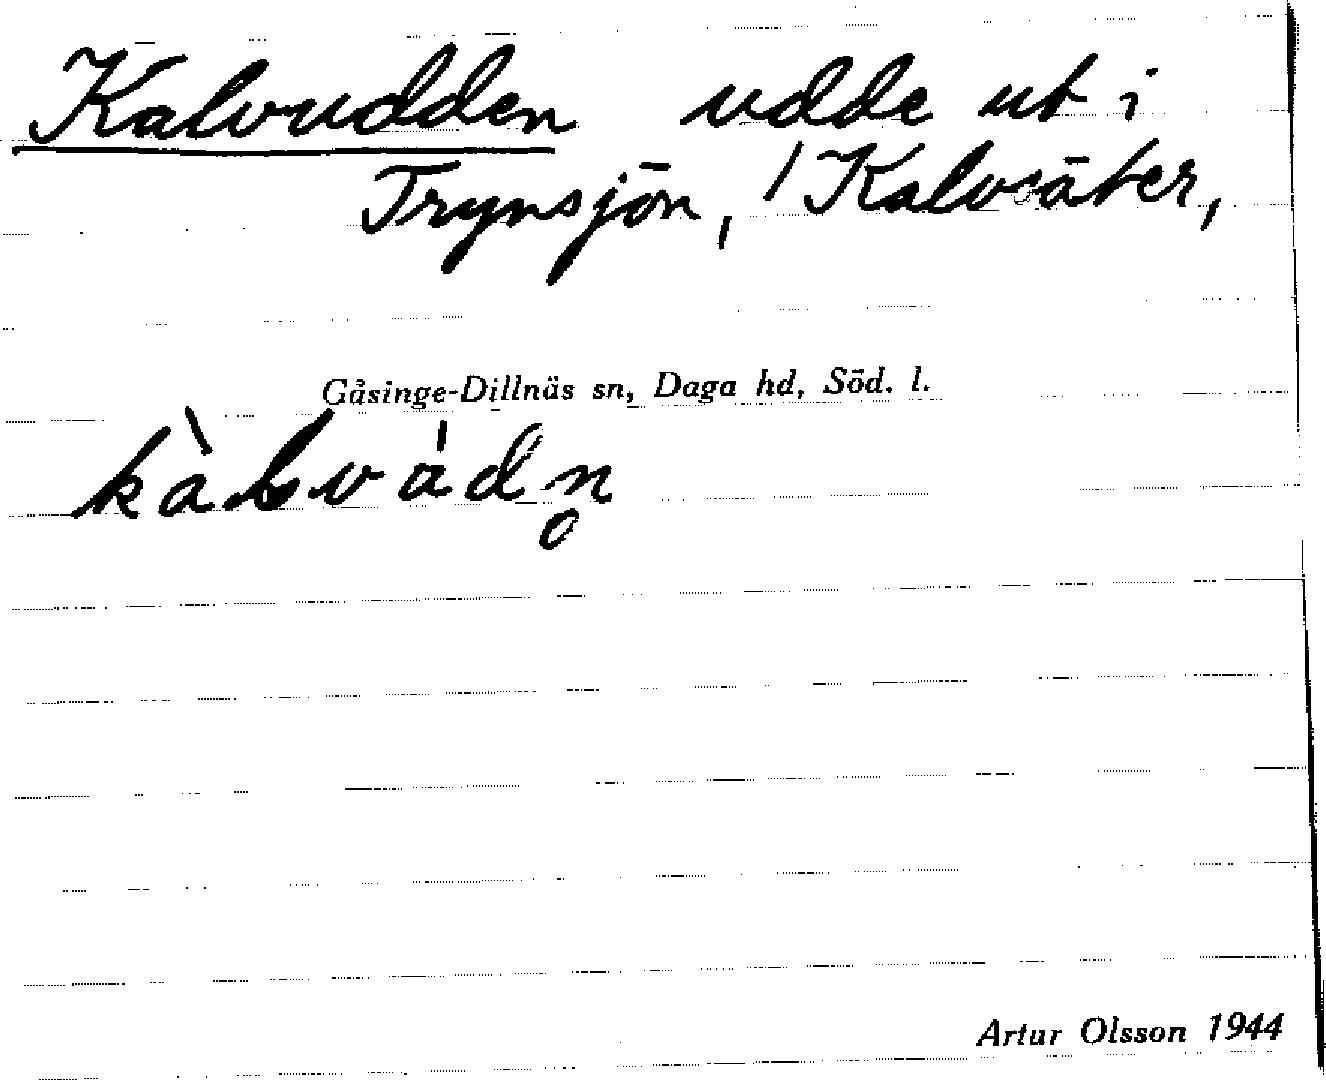 Kalvudden udde ut i
Trynsjön, / Kalvsäter,
Gåsinge-Dillnäs sn, Daga hd, Söd. l.
kàlvádn̥
Artur Olsson 1944